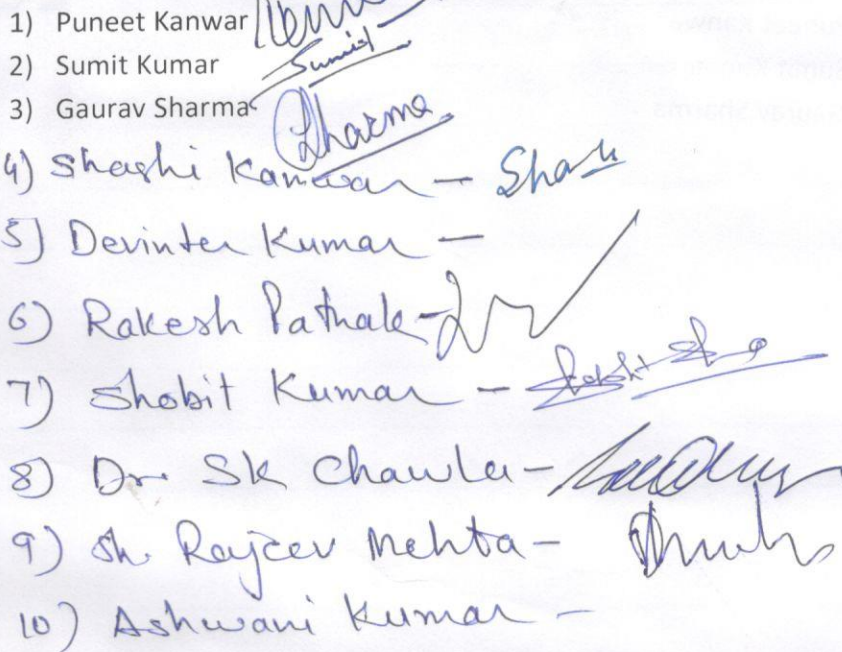 1) Puneet Kanwar
2) Sumit Kumar Sumit
3) Gaurav Sharma Sharma
4) Shashi Kanwar - Shashi
5) Devinter Kumar -
6) Rakesh Pathak -
7) Shobit Kumar -
8) Dr. SK Chawla -
9) Sh. Rajeev Mehta -
10) Ashwani Kumar -